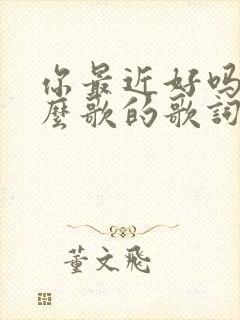 你最近好吗
麼歌的歌詞
董文飛